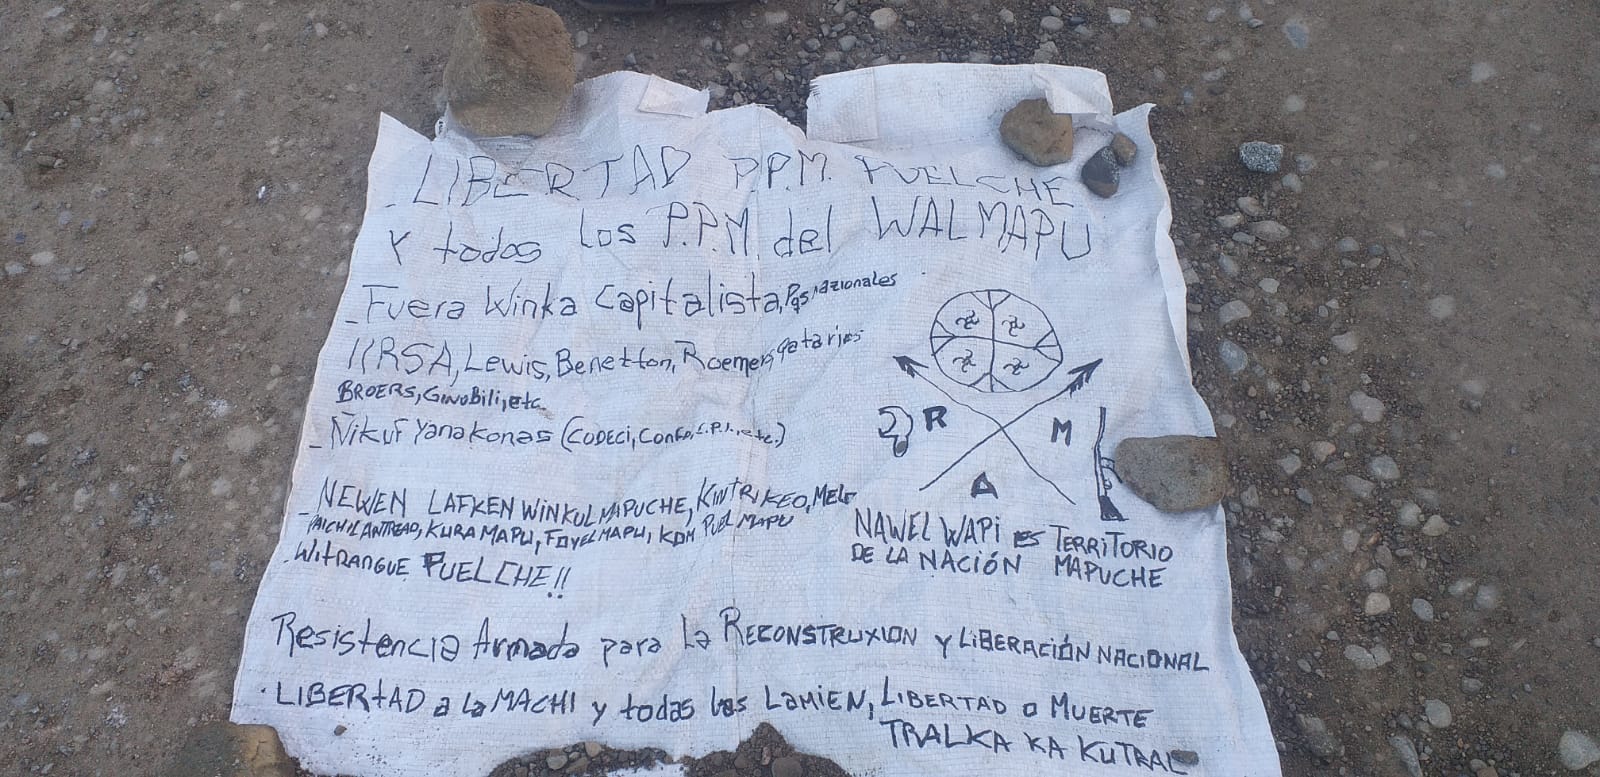 _ LIBERTAD P.P.M. PUELCHE
Y todos los P.P.M. del WALMAPU
_ Fuera Winka Capitalista, nazionales
IIRSA, Lewis, Benetton, Roemers, qataries
BROERS, GINOBili, etc.
_ Ñikuf Yanakonas (CODECI, Confo, etc.)
_ NEWEN LAFKEN WINKUL MAPUCHE, KINTRIKEO, MELO
PAICHIL ANTREAO, KURA MAPU, FOYEL MAPU, KOM PUEL MAPU
- WITRANGUE PUELCHE!!
R M
A
NAWEL WAPI es TERRITORIO
DE LA NACIÓN MAPUCHE
Resistencia Armada para la RECONSTRUXION y LIBERACIÓN NACIONAL
· LIBERTAD a la MACHI y todas las Lamien, LIBERTAD o MUERTE
TRALKA KA KUTRAL